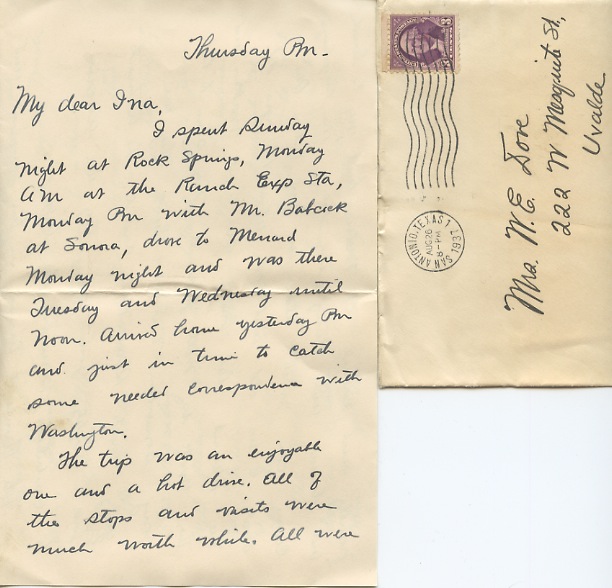 Thursday Pm-
My dear Ina,
I spent Sunday
night at Rock Springs, Monday
am at the Ranch Exp Sta,
Monday Pm with Mr. Babcock
at Sonora, drove to Menard
Monday night and was there
Tuesday and Wednesday until
noon. Arrived home yesterday Pm
and just in time to catch
some needed correspondence with
Washington.
The trip was an enjoyable
one and a hot drive. All of
the stops and visits were
much worth while. All were
3
SAN ANTONIO, TEXAS 1
AUG 26
8-PM
Mrs. W. E. Dove
222 W Mesquite St,
Uvalde